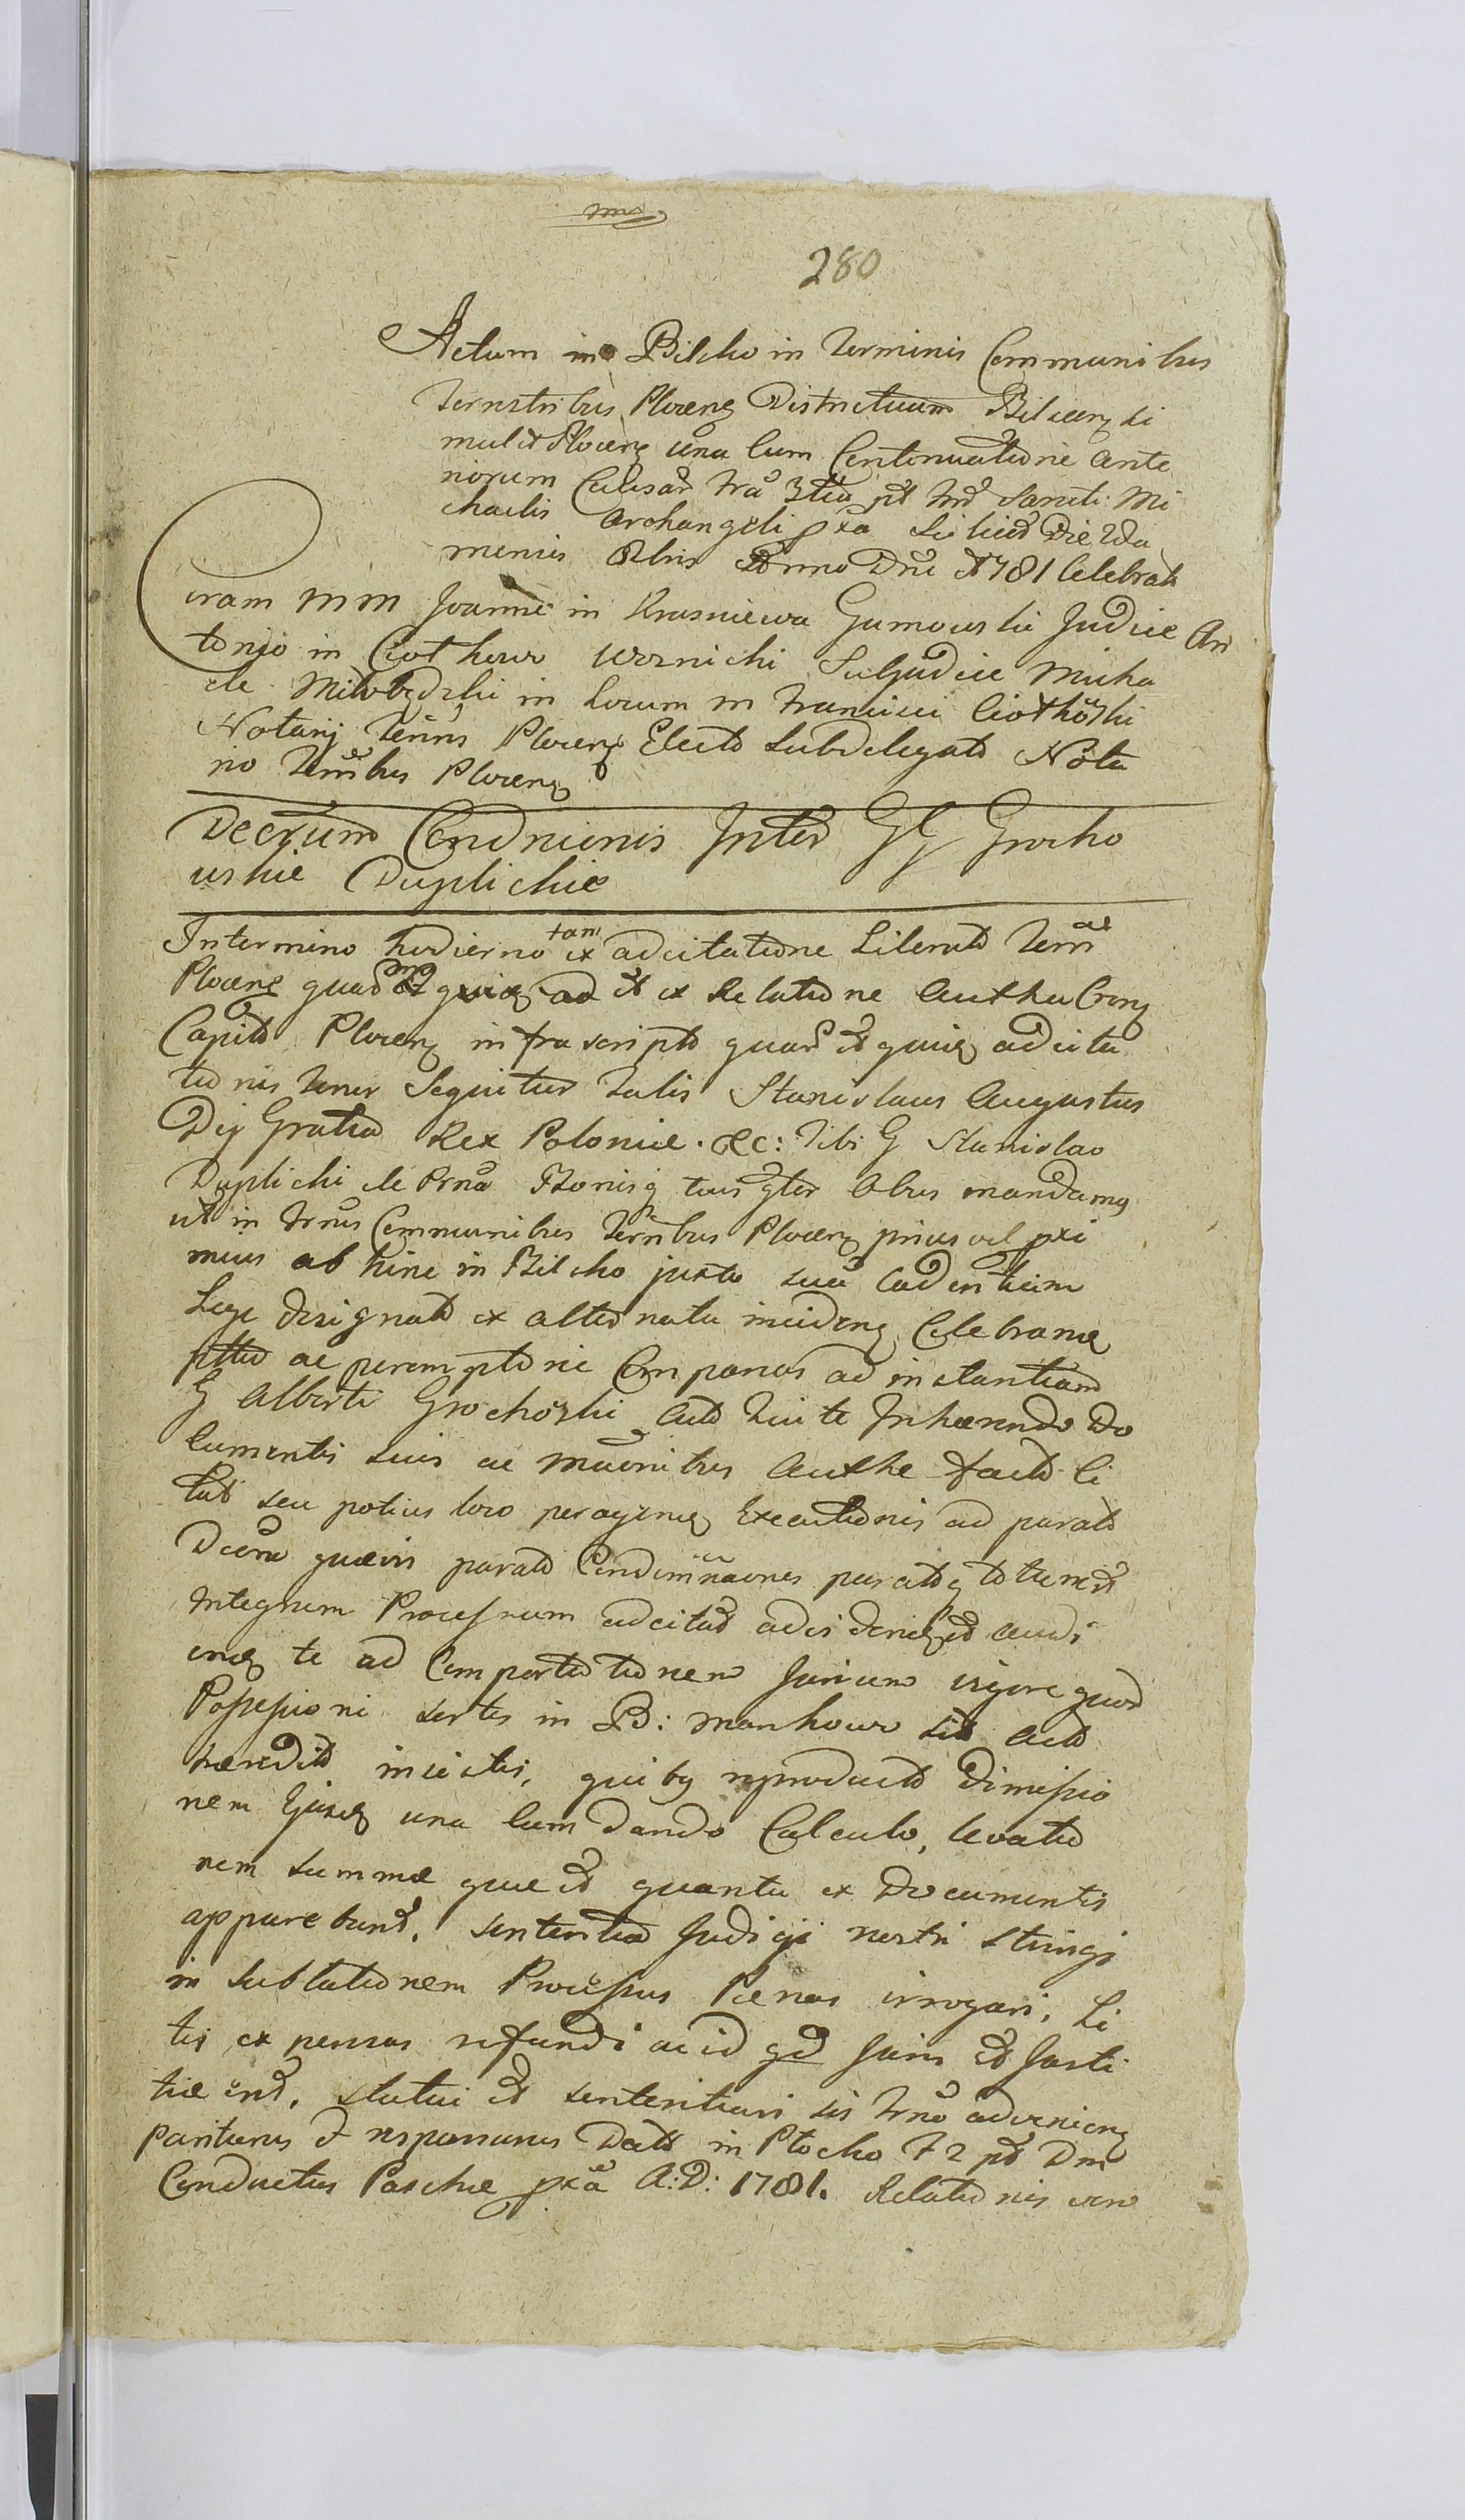 280
Actum in Bilcho in Terminis Communibus
Terrestribus Plocens Districtuum Bilscens Si
mul et Plocens una Cum Continuatione Ante
riorum Causar Fra 3tia pt Frm Sancti Mi
chaelis Archangeli pxa Scilicet Die 2da
mensis 8bris Anno Dni 1781 Celebrat
Coram MM Joanne in Krasniewa Gumowski Judice An
tonio in Ciothowo Woznicki Subjudice Micha
ele Milobędzki in Locum M Francisci Ciotkoski
Notarij Terris Plocens Electo Subdelegato Nota
rio Terribus Plocens
Decrum Condnionis Inter GG Grocho
wskie Duplickie
In termino hodierno tam ex adcitatione Literat Terrae
Plocens quam et ex Relatione Authen Crens
Capit Plocens infrascripto quar et quid adcita
tionis Tenor Sequitur Talis Stanislaus Augustus
Dei Gratia Rex Poloniae &c: Tibi G Stanislao
Duplicki de Prna Bonisq tuis gler Obus mandamus
ut in Trnis Communibus Terribus Plocens prius vel pxi
mius ab hinc in Bilcho juxta sua Cadentiam
Lege designato ex alternata inciden Celebrane
pltr ac peremptorie Compareas ad instantiam
G Alberti Grochoski Act Qui te Inhaerendo Do
cumentis suis ac Munibus Authe facto Ci
tat seu potius loco peragenda Executionis ad parato
Dcern quavis parato Condemnaones parcitq totum et
Integrum Processum adcitat adiudenqd audi
end te ad Comportationem Jurium vigore quor
Possessioni sortis in B: Mankowo sit Act
haeredit iniectis, quibus reproducto Dimissio
nem Ejusd una Cum dando Calculo, levatio
nem summae quae et quanta ex Documentis
apparebunt, sententia Judicij nostri stringi
in sublationem Processus Poenas irrogari, Li
tis expensas refundi ac id qd Juris et Justi
tiae ent, statui et sententiari sis Trno adveniens
pariturus et responsurus Dat in Plocko F 2 pt Dm
Conductus Paschae pxa A:D: 1781. Relationis vero